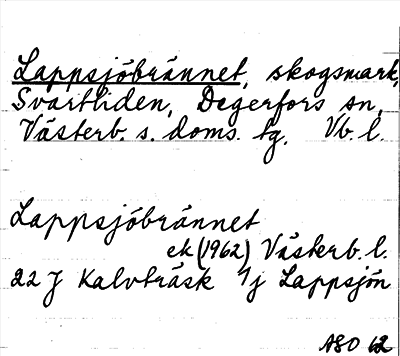 Lappsjöbrännet, skogsmark,
Svartliden, Degerfors sn,
Västerb. s. doms. tg. Vb. l.
Lappsjöbrännet
ek (1962) Västerb. l.
22 J Kalvträsk 1/j Lappsjön
ASO 62